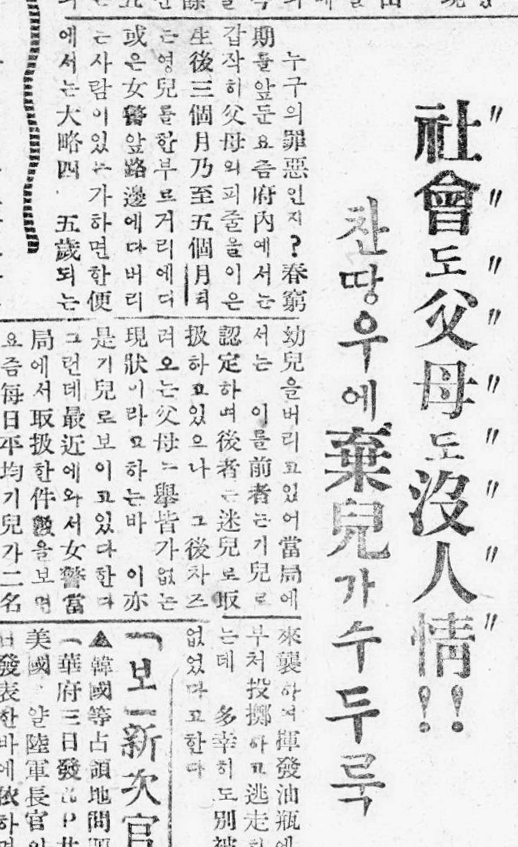 社會도父母도沒人情!!
찬땅우에棄兒가수두룩
누구의罪惡인지?春窮
期를앞둔요즘府內에서는
갑작히父母의피줄을이은
生後三個月乃至五個月되
는영兒를한부로거리에더
或은女警앞路邊에다버리
는사람이있는가하면한便
에서는大略四 五歲되는
幼兒을버리고있어當局에
서는 이를前者는기兒로
認定하며後者는迷兒로取
扱하고있으나 그後차즈
러오는父母는擧皆가없는
現狀이라고하는바 이亦
是기兒로보이고있다한다
그런데最近에와서女警當
局에서取扱한件數을보면
요즘每日平均기兒가二名
來襲하여揮發油瓶에
부처投擲하고逃走하
는데 多幸히도別被
없었다고한다
新次官
▲韓國等占領地問題
華府三日發
美國 陸軍長官
發表한바에依하면